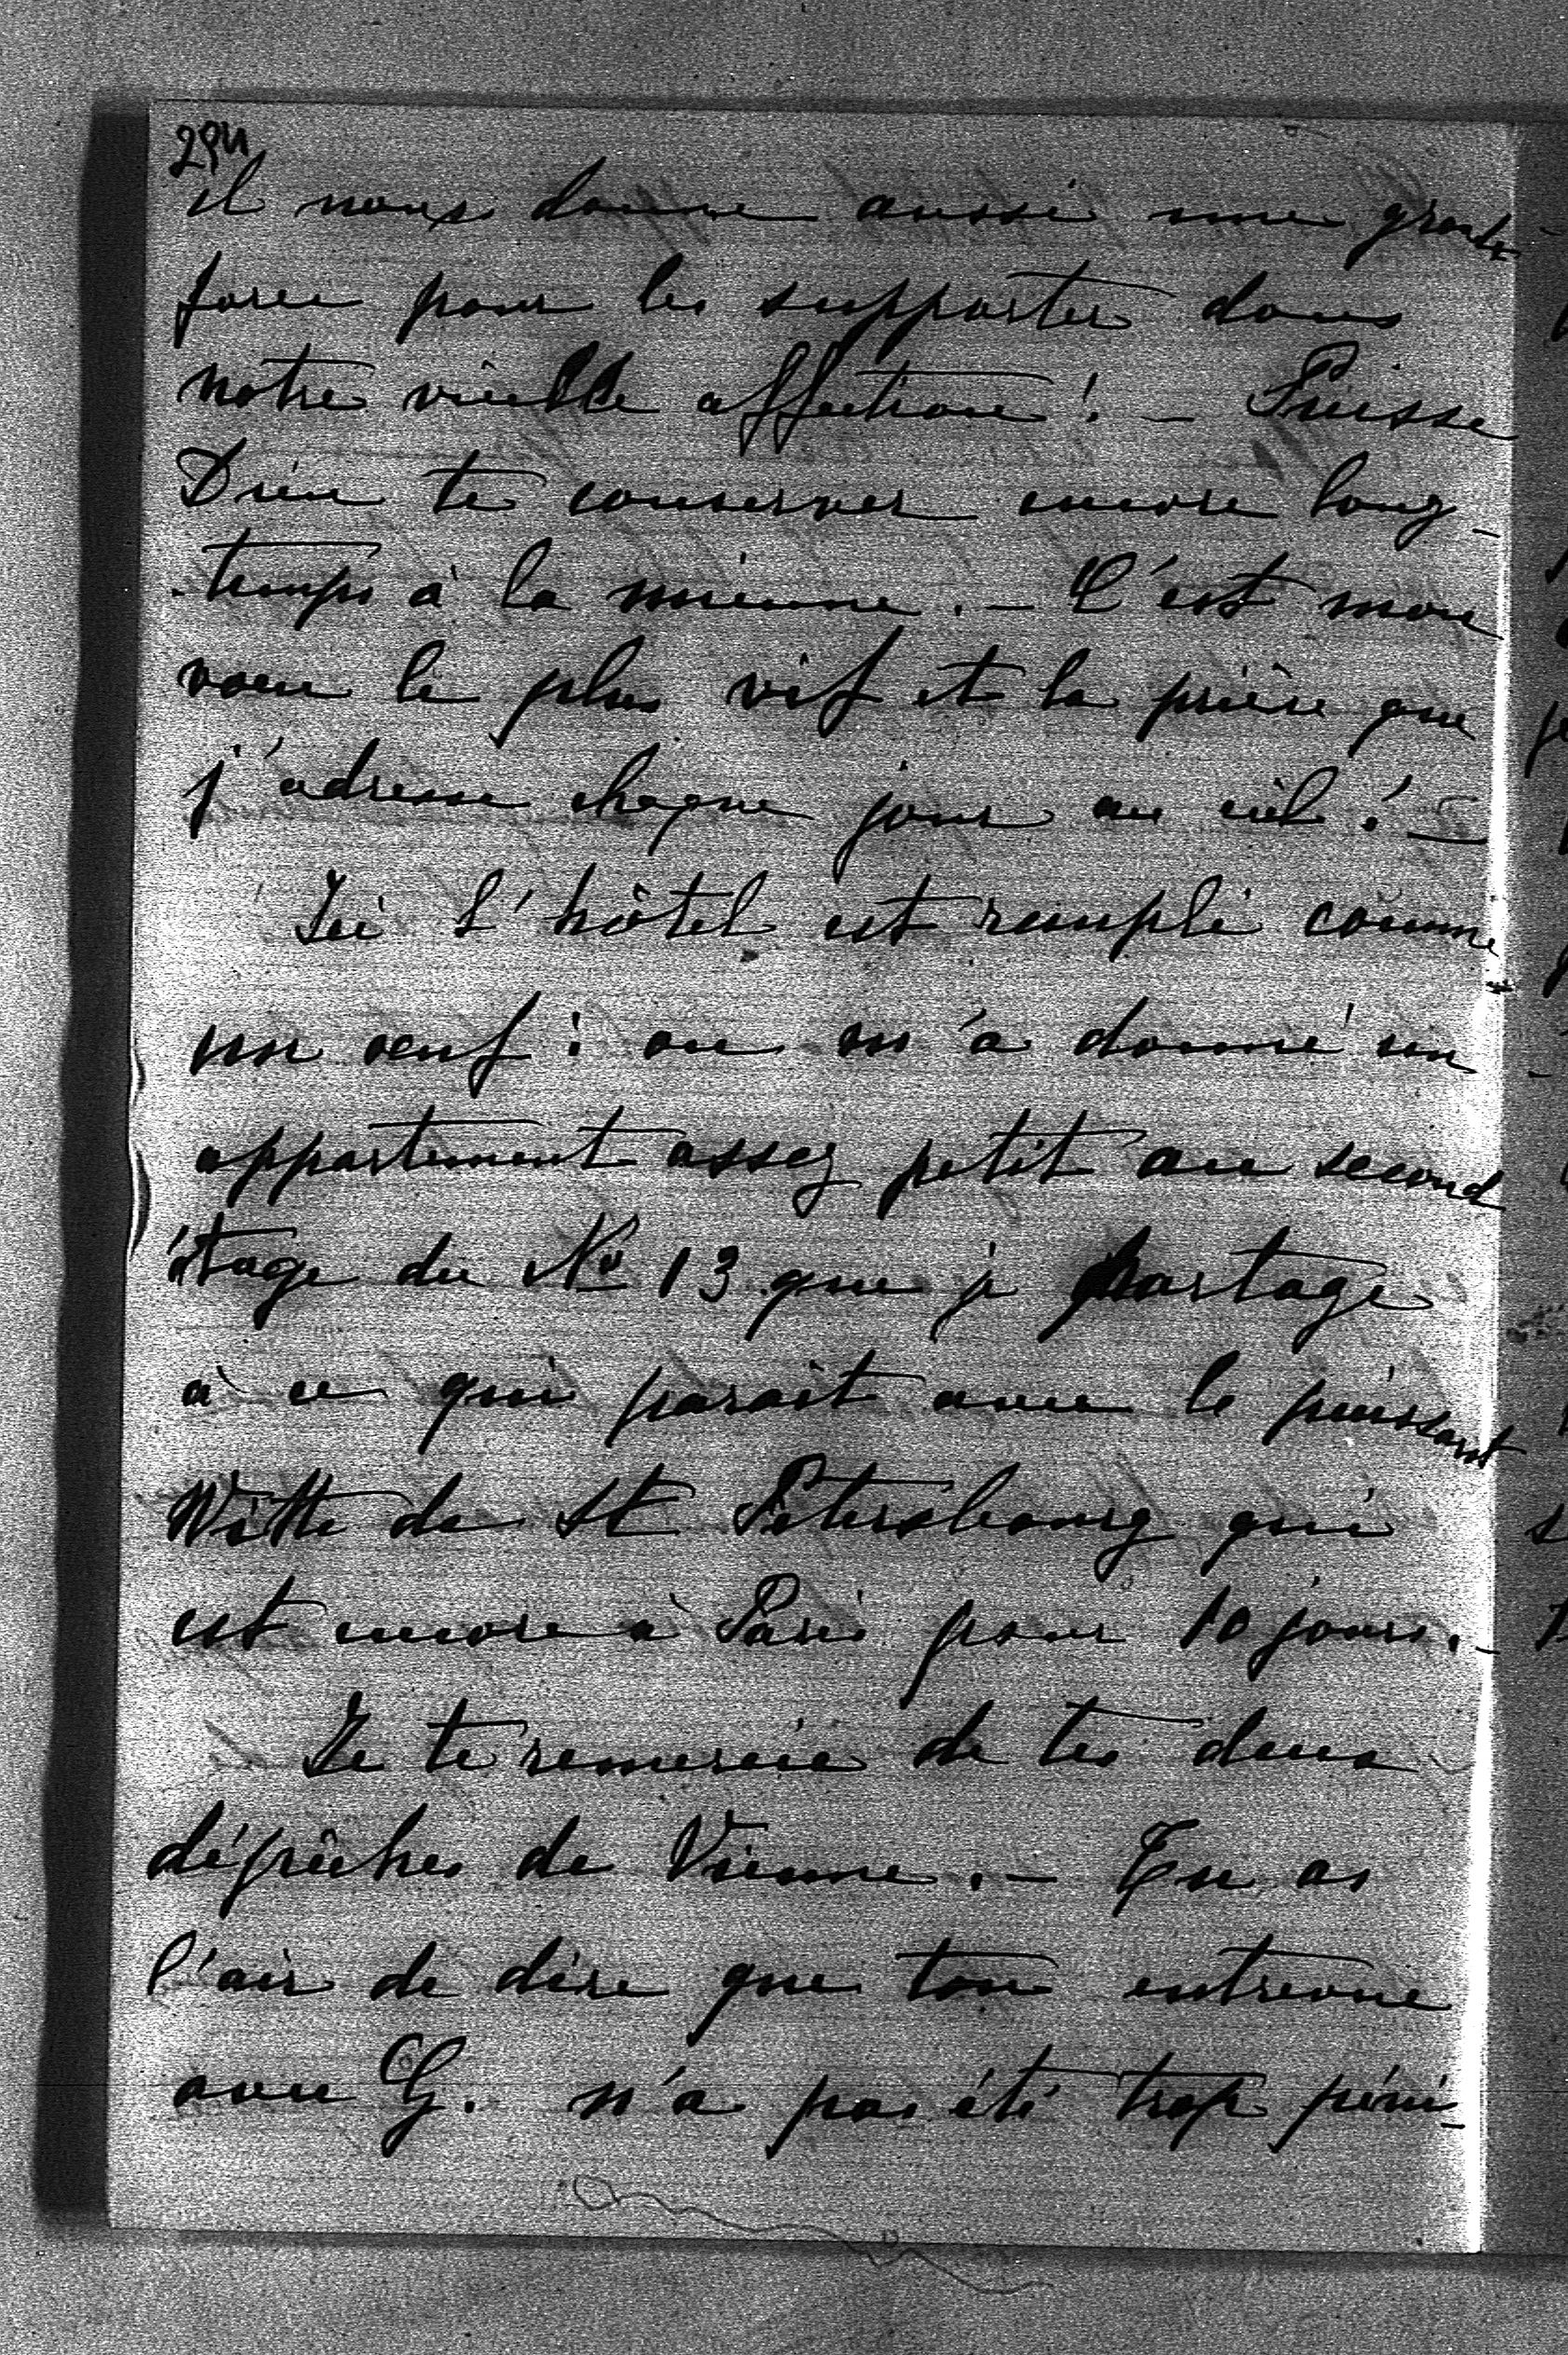 il nous donne aussi une grande
force pour les supporter dans
notre vieille affection ! – Puisse
Dieu te conserver encore long-
-temps à la mienne. – C'est mon
voeu le plus vif et la prière que
j'adresse chaque jour au ciel ! –
Ici l'hôtel est rempli comme
un oeuf : on m'a donné un
appartement assez petit au second
étage du No 13 que je partage
à ce qui parait avec le puissant
Witte de St Pétersbourg qui
est encore à Paris pour 10 jours. –
Je te remercie de tes deux
dépêches de Vienne. – Tu as
l'air de dire que ton entrevue
avec G. n'a pas été trop péni-